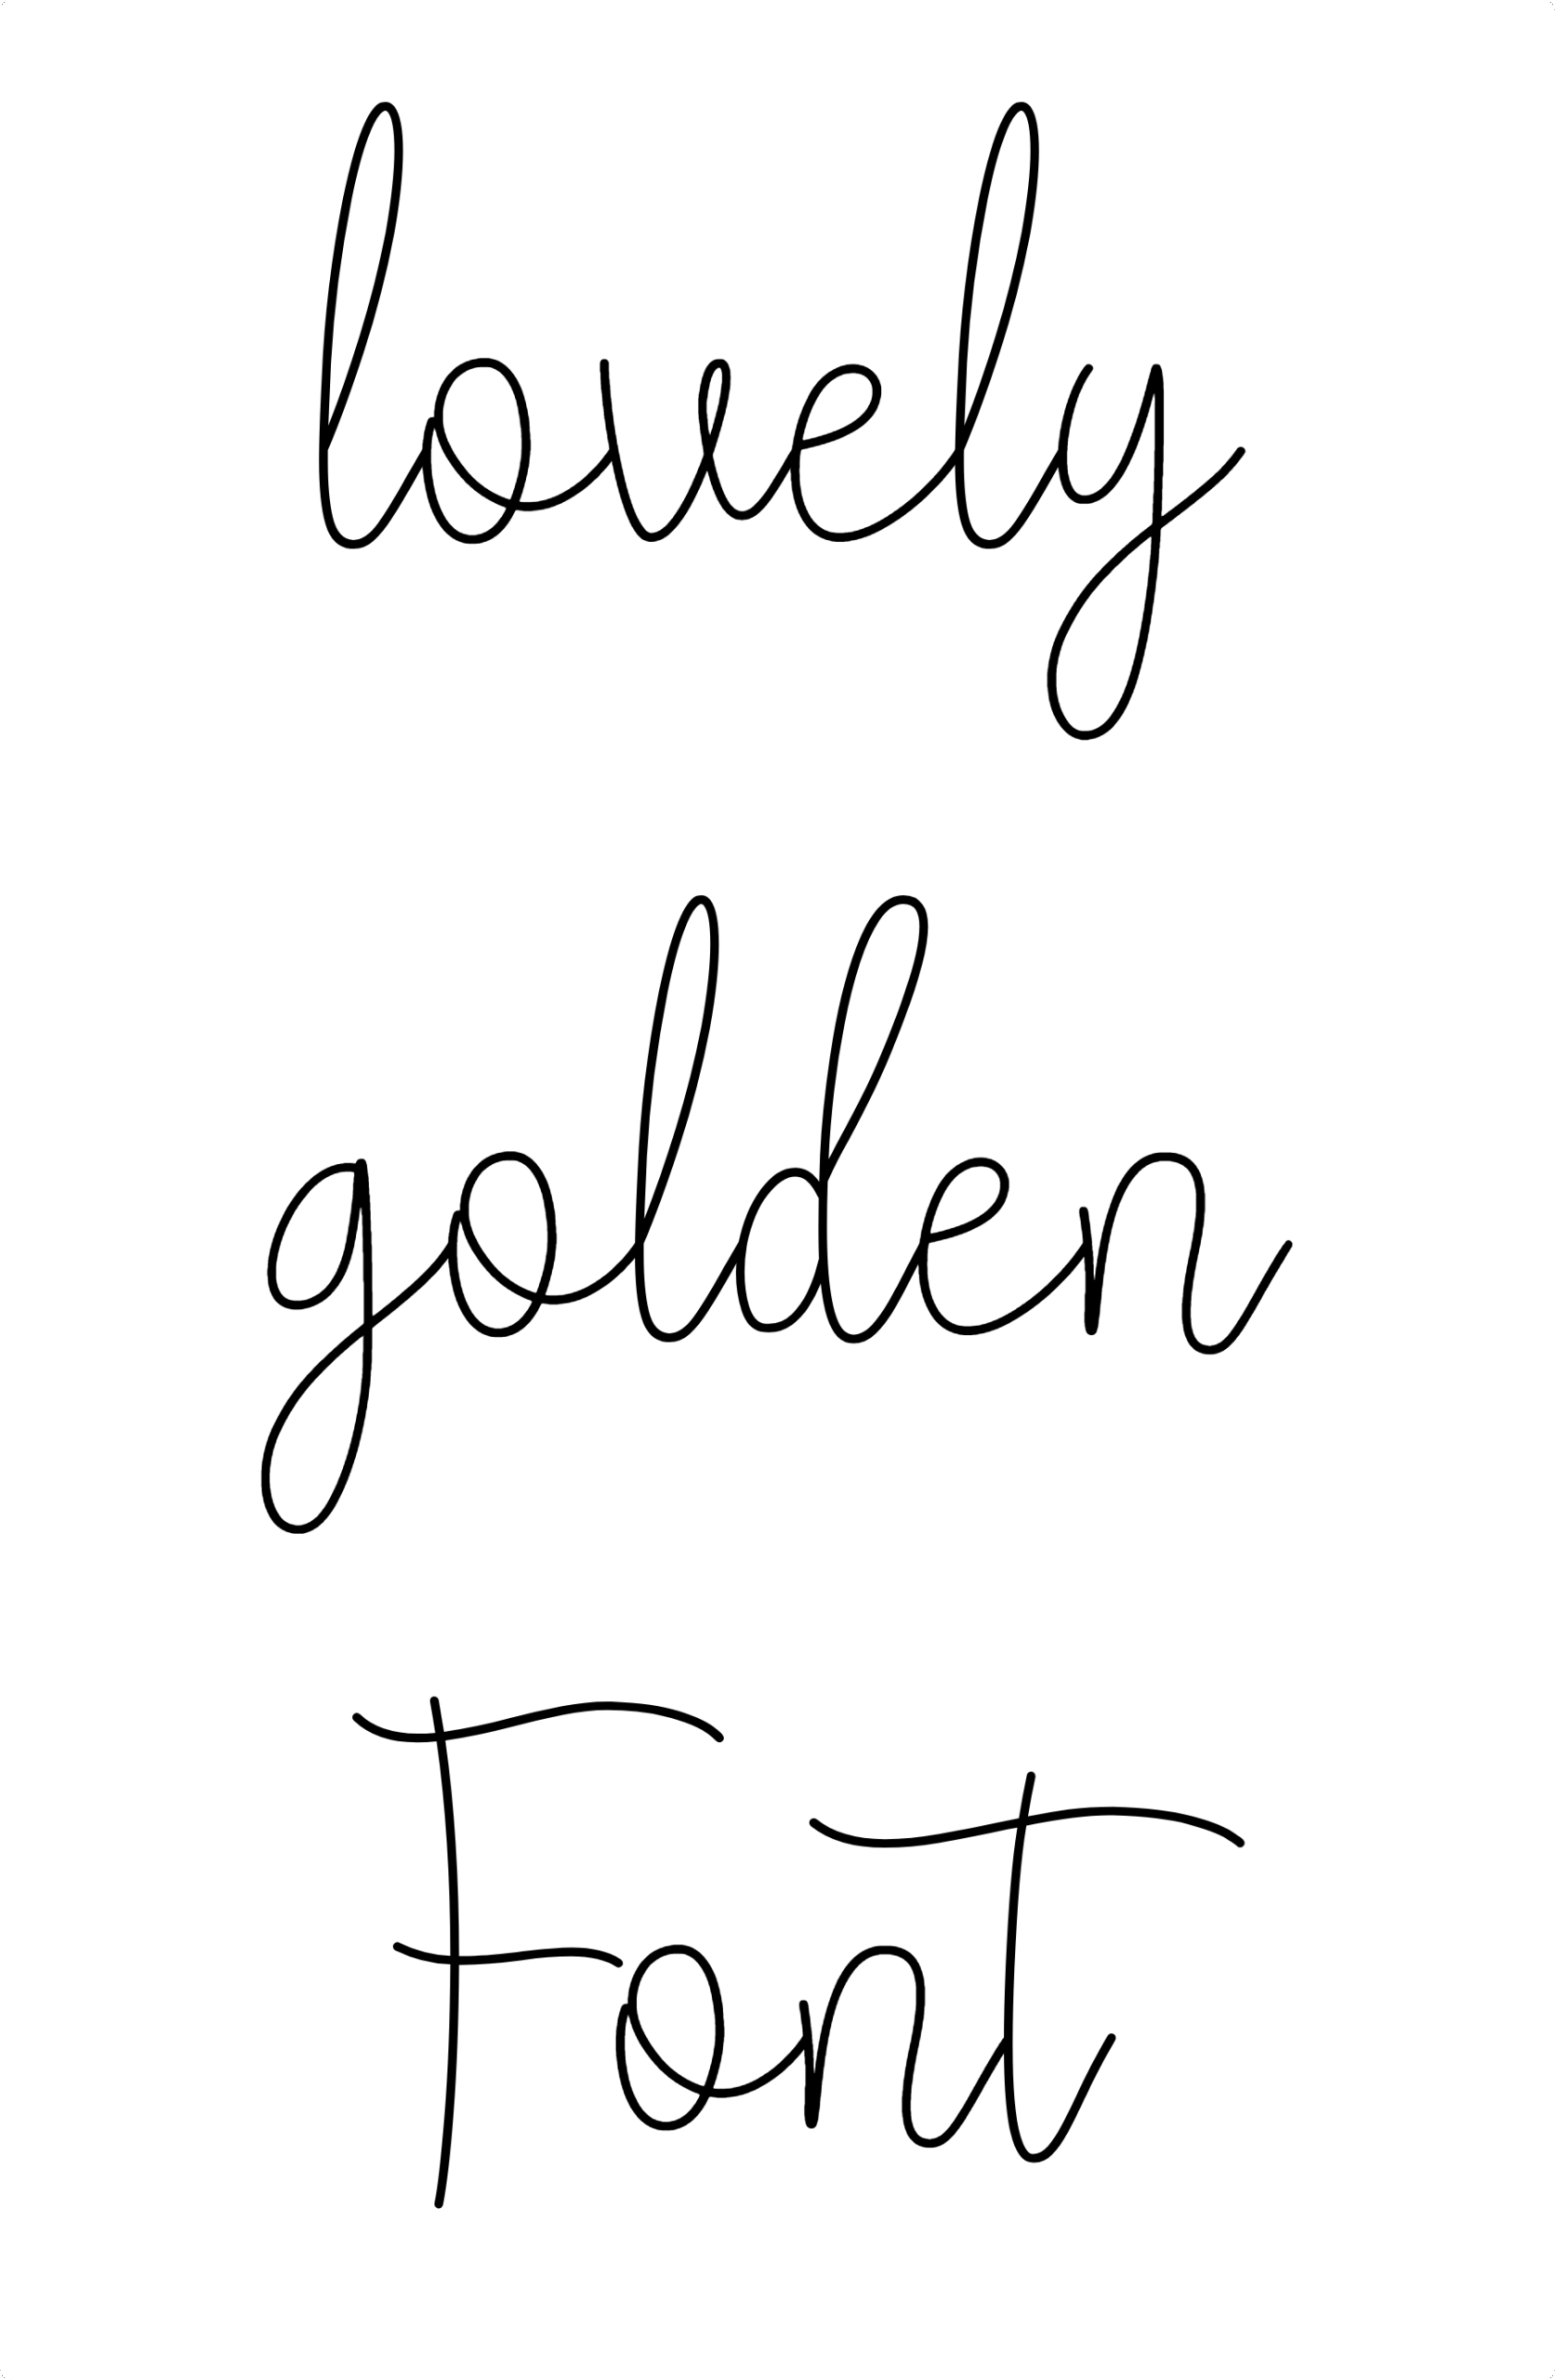 lovely
golden
Font